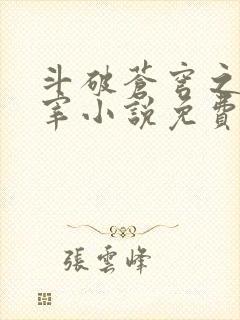 斗破蒼穹之
宰小說免費
張雲峰